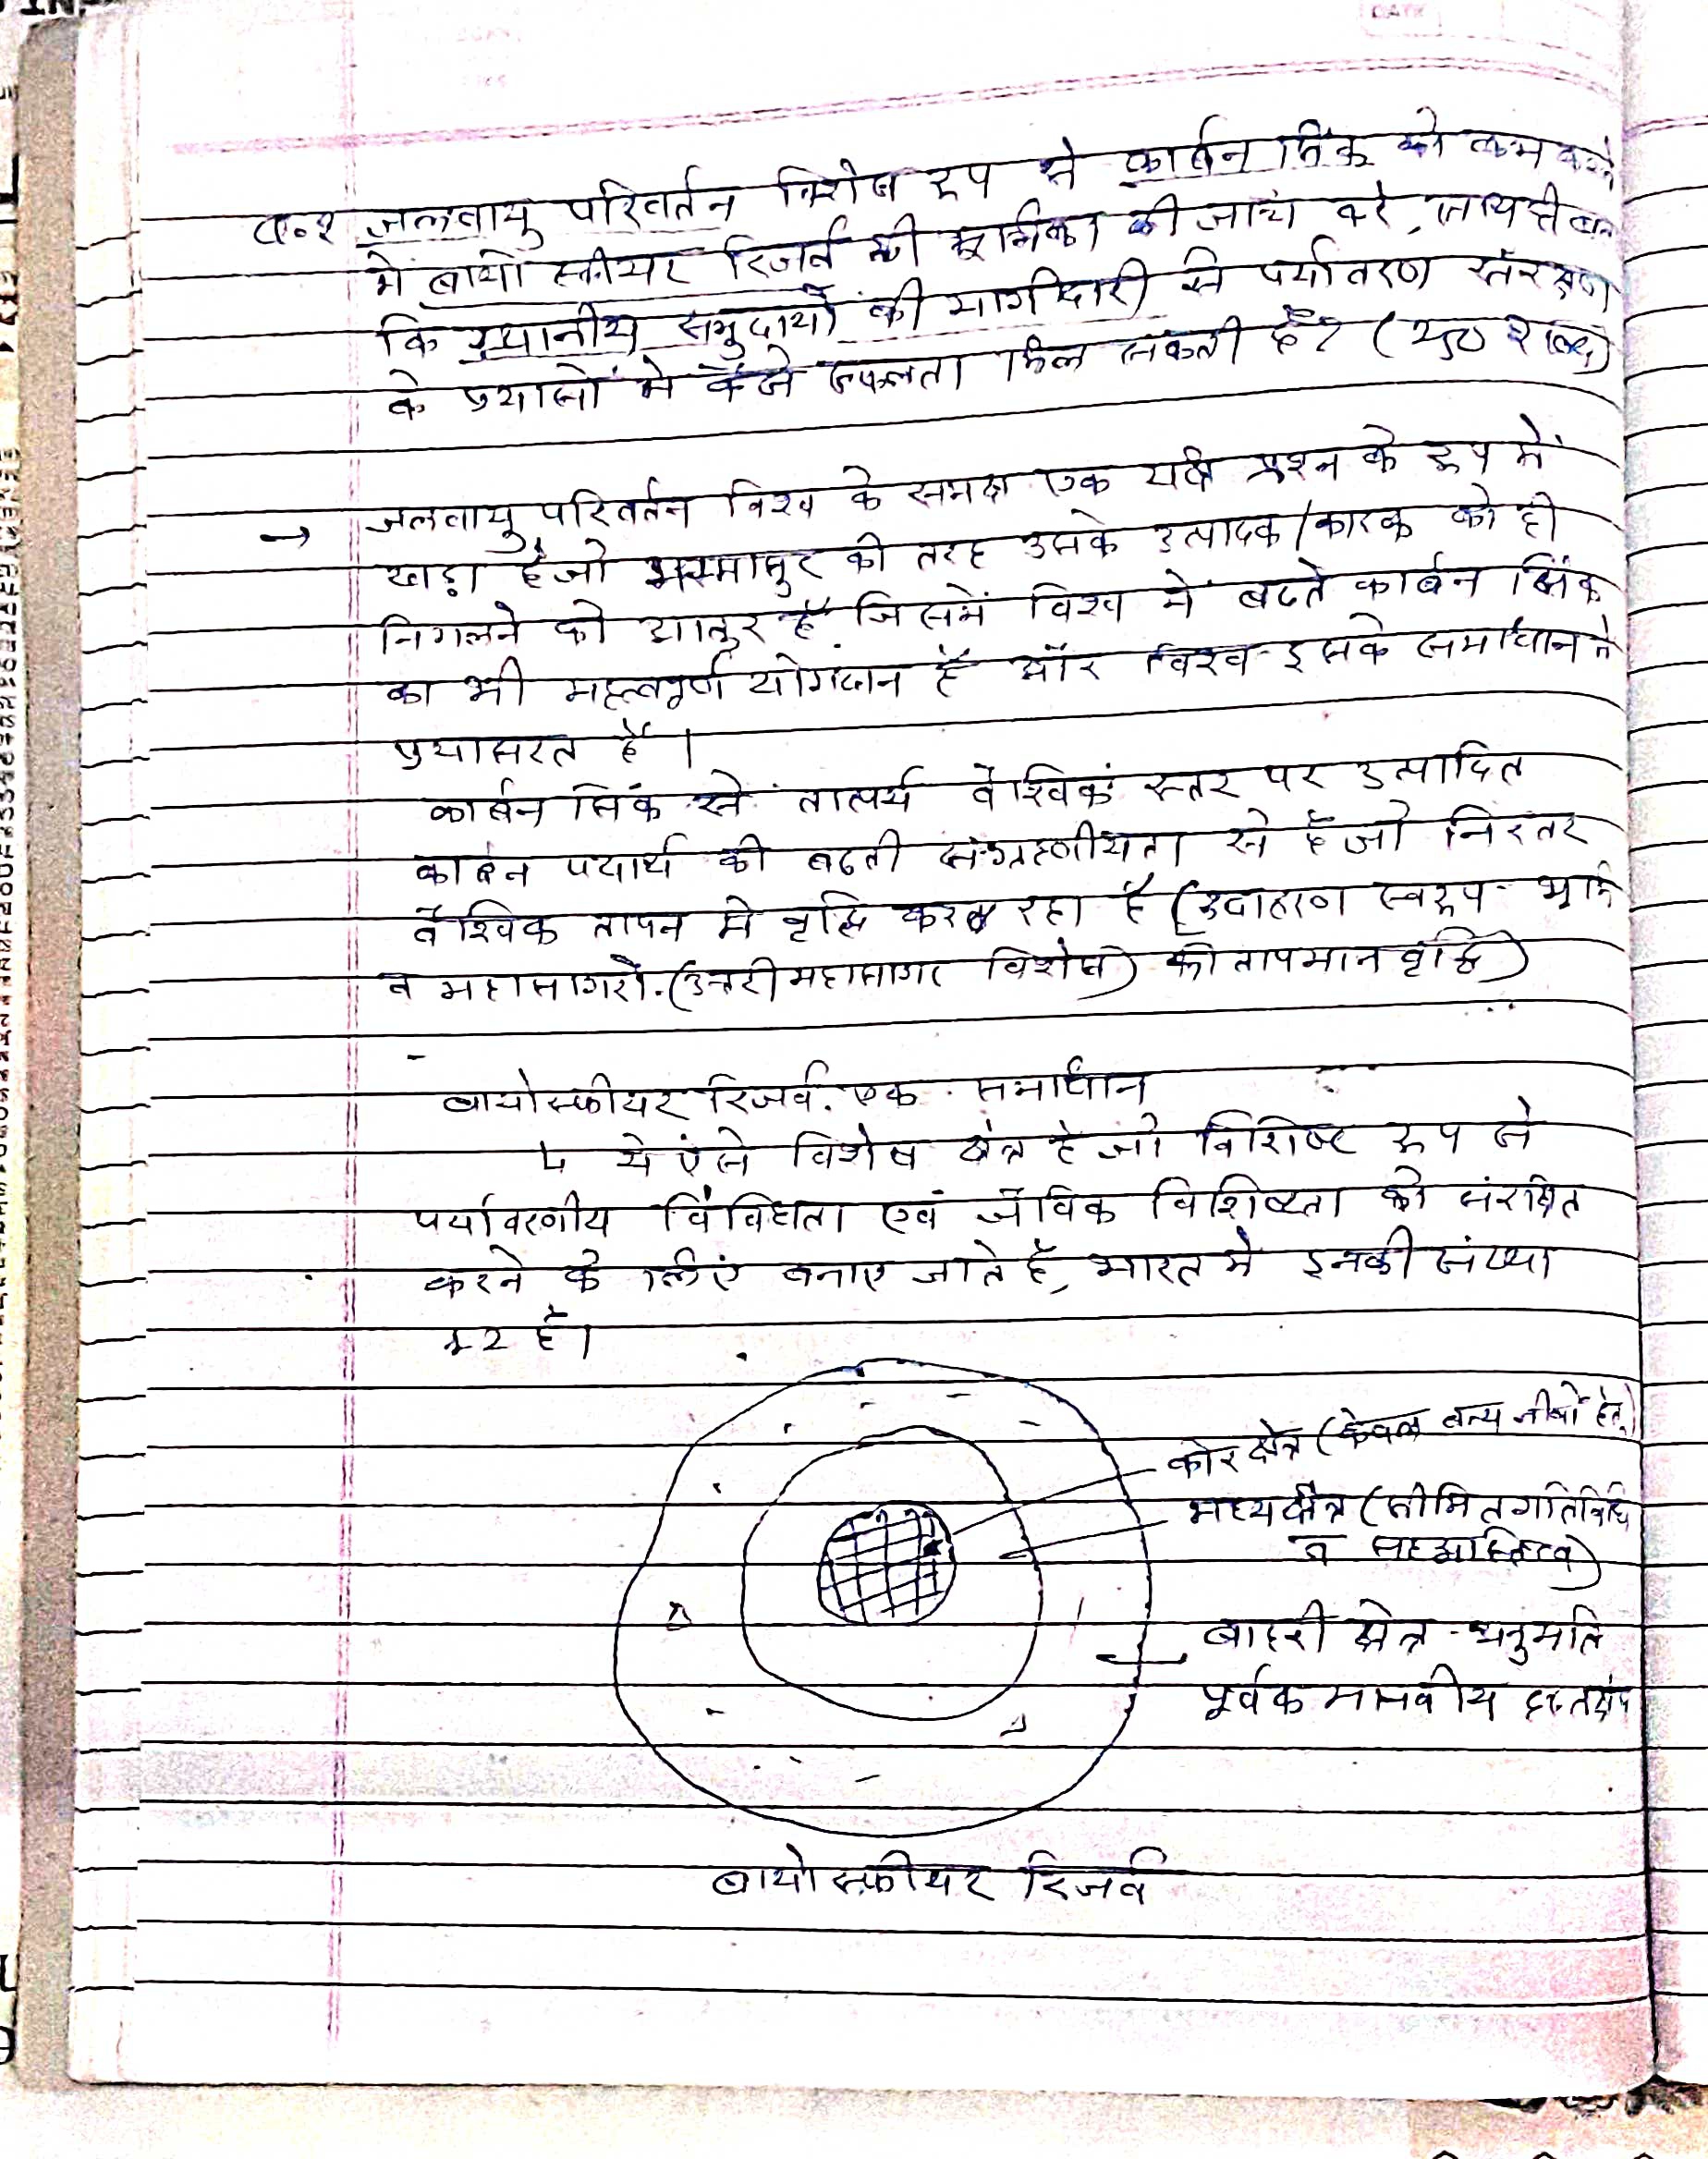 प्र.१ जलवायु परिवर्तन विशेष रूप से कार्बन सिंक को कम करने
में बायोस्फीयर रिजर्व की भूमिका की जांच करे, साथ ही
कि स्थानीय समुदायों की भागीदारी से पर्यावरण संरक्षण
के प्रयासों में कैसे सफलता मिल सकती है? (250 शब्द)
→ जलवायु परिवर्तन विश्व के समक्ष एक यक्ष प्रश्न के रूप में
खड़ा है जो भस्मासुर की तरह उसके उत्पादक/कारक को ही
निगलने को आतुर है जिसमें विश्व में बढते कार्बन सिंक
का भी महत्वपूर्ण योगदान है और विश्व इसके समाधान में
प्रयासरत है।
कार्बन सिंक से तात्पर्य वैश्विक स्तर पर उत्पादित
कार्बन पदार्थ की बढती संग्रहणीयता से है जो निरंतर
वैश्विक तापन में वृद्धि कर रहा है (उदाहरण स्वरूप- भूमि
व महासागरों (उत्तरी महासागर विशेष) की तापमान वृद्धि)
बायोस्फीयर रिजर्व. एक समाधान
↳ ये ऐसे विशेष क्षेत्र है जो विशिष्ट रूप से
पर्यावरणीय विविधता एवं जैविक विशिष्टता को संरक्षित
करने के लिए बनाए जाते है, भारत में इनकी संख्या
12 है।
कोर क्षेत्र (केवल वन्य जीवों हेतु)
मध्य क्षेत्र (सीमित गतिविधि
व सहअस्तित्व)
बाहरी क्षेत्र - अनुमति
पूर्वक मानवीय हस्तक्षेप
बायोस्फीयर रिजर्व